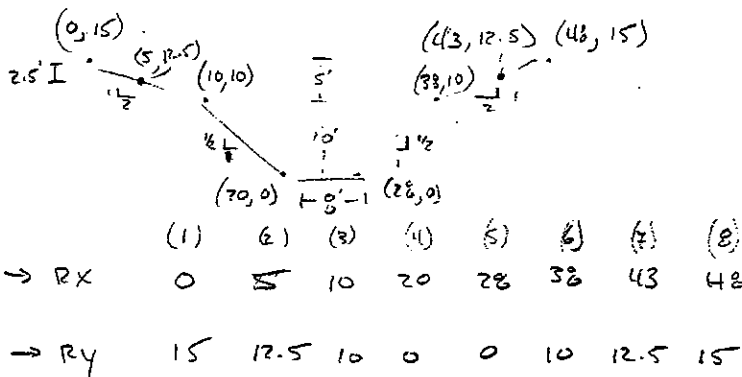 (0, 15)
(5, 12.5)
(10, 10)
2.5'
1
2
5'
10'
(43, 12.5) (48, 15)
(38, 10)
2 1
(20, 0) 8' (28, 0)
(1) (2) (3) (4) (5) (6) (7) (8)
→ RX 0 5 10 20 28 38 43 48
→ Ry 15 12.5 10 0 0 10 12.5 15